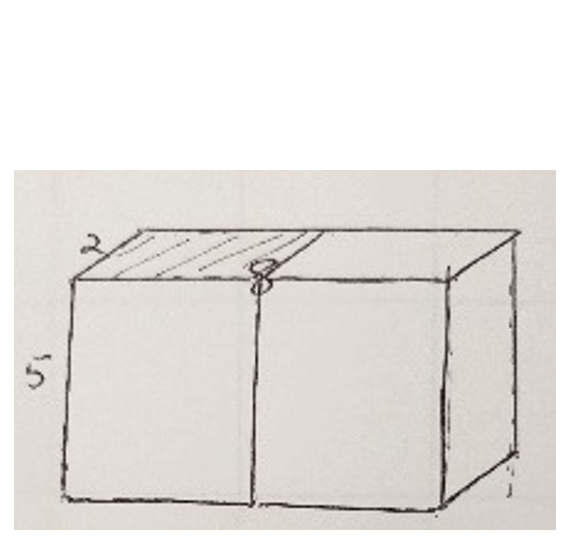 2
8
5